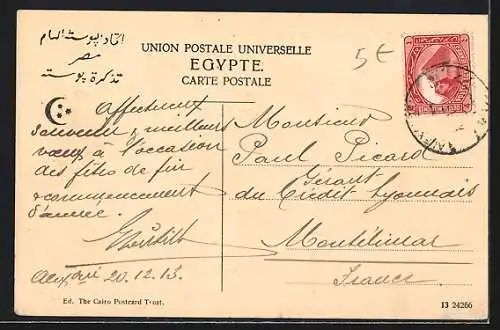 اتحاد پوسته العام
مصر
تذكرة پوسته
UNION POSTALE UNIVERSELLE
EGYPTE.
CARTE POSTALE
5€
Affectueux
souvenir & meilleurs
vœux à l'occasion
des fêtes de fin
& commencement
d'année.
20.12.13.
Monsieur
Paul Picard
Gérant
du Crédit Lyonnais
Montélimar
France
Ed. The Cairo Postcard Trust.
13 24266